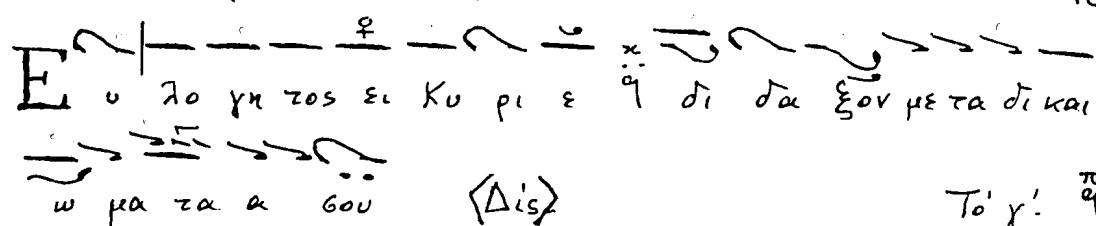 Ευ λο γη τος ει Κυ ρι ε δι δα ξον με τα δι και
ω μα τα α σου ⟨Δίς⟩ Το γ΄.